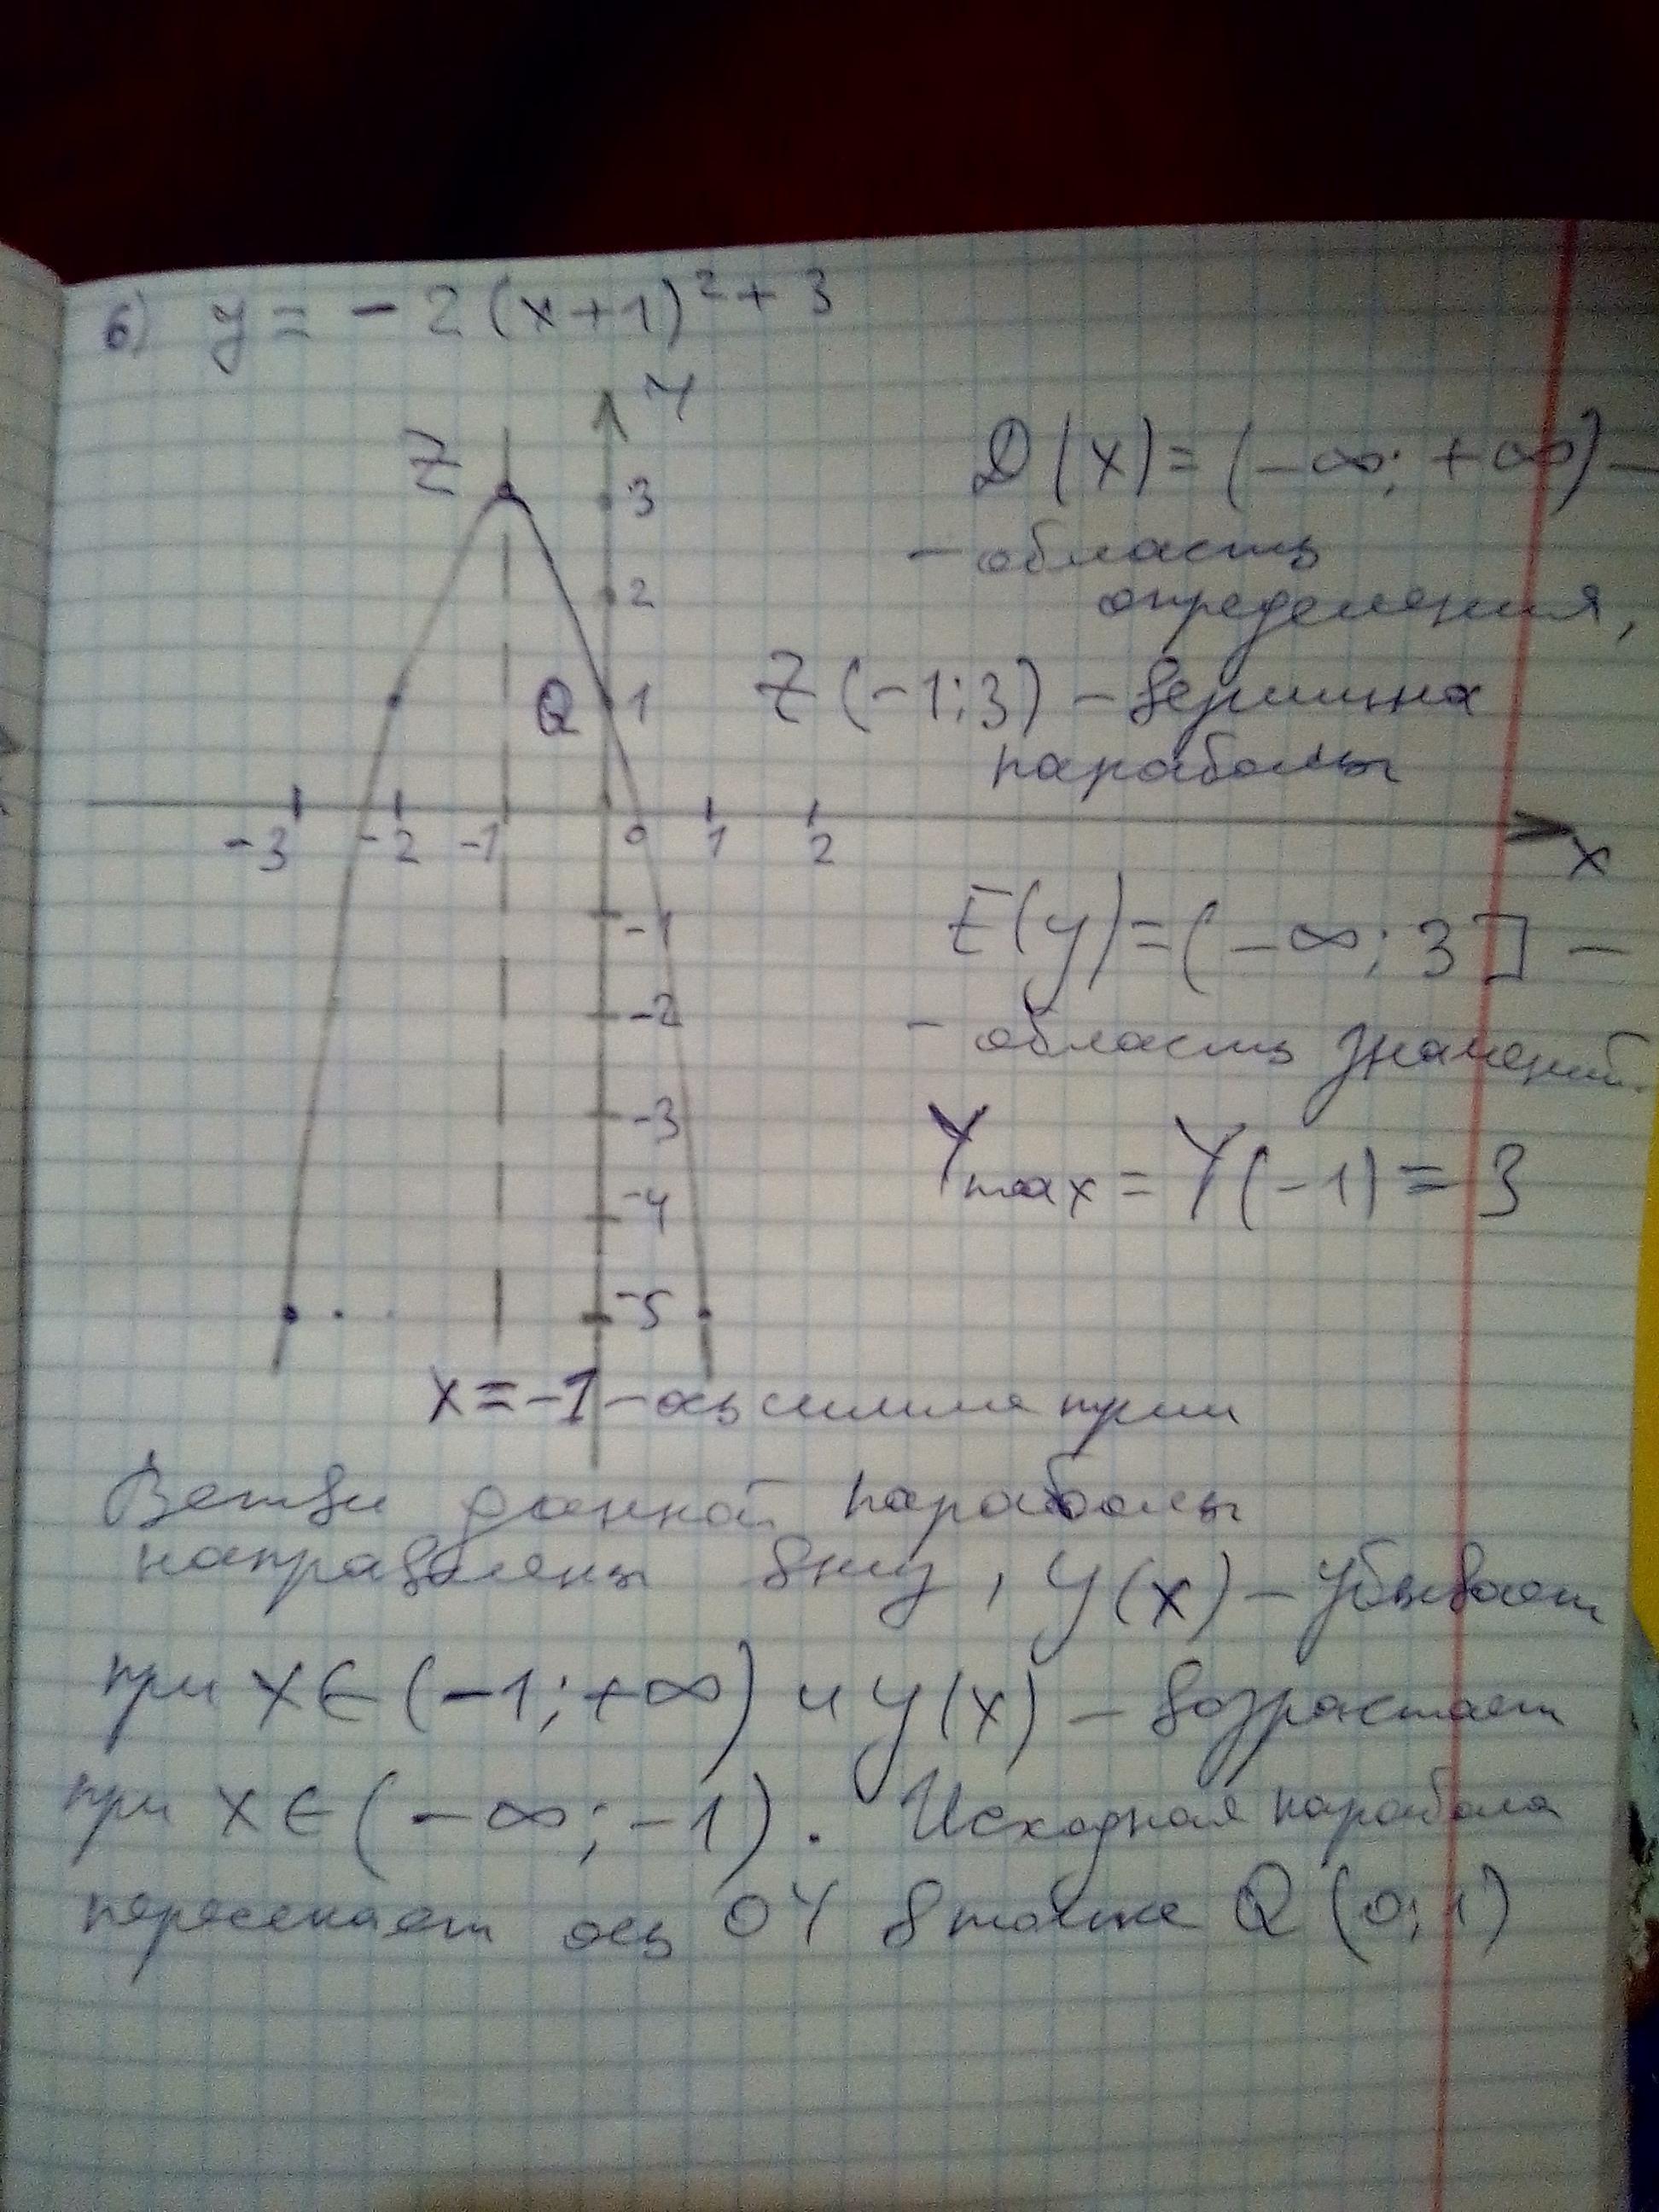 б) y = -2(x+1)²+3
Y
Z
3
2
Q 1
-3 -2 -1 0 1 2
x
-1
-2
-3
-4
-5
D(x)=(-∞; +∞) -
- область
определения,
Z(-1;3) - вершина
параболы
E(y)=(-∞; 3] -
- область значений.
Ymax = Y(-1) = 3
x=-1 - ось симметрии
Ветви данной параболы
направлены вниз, y(x) - убывает
при x∈(-1;+∞) и y(x) - возрастает
при x∈(-∞;-1). Исходная парабола
пересекает ось OY в точке Q(0;1)